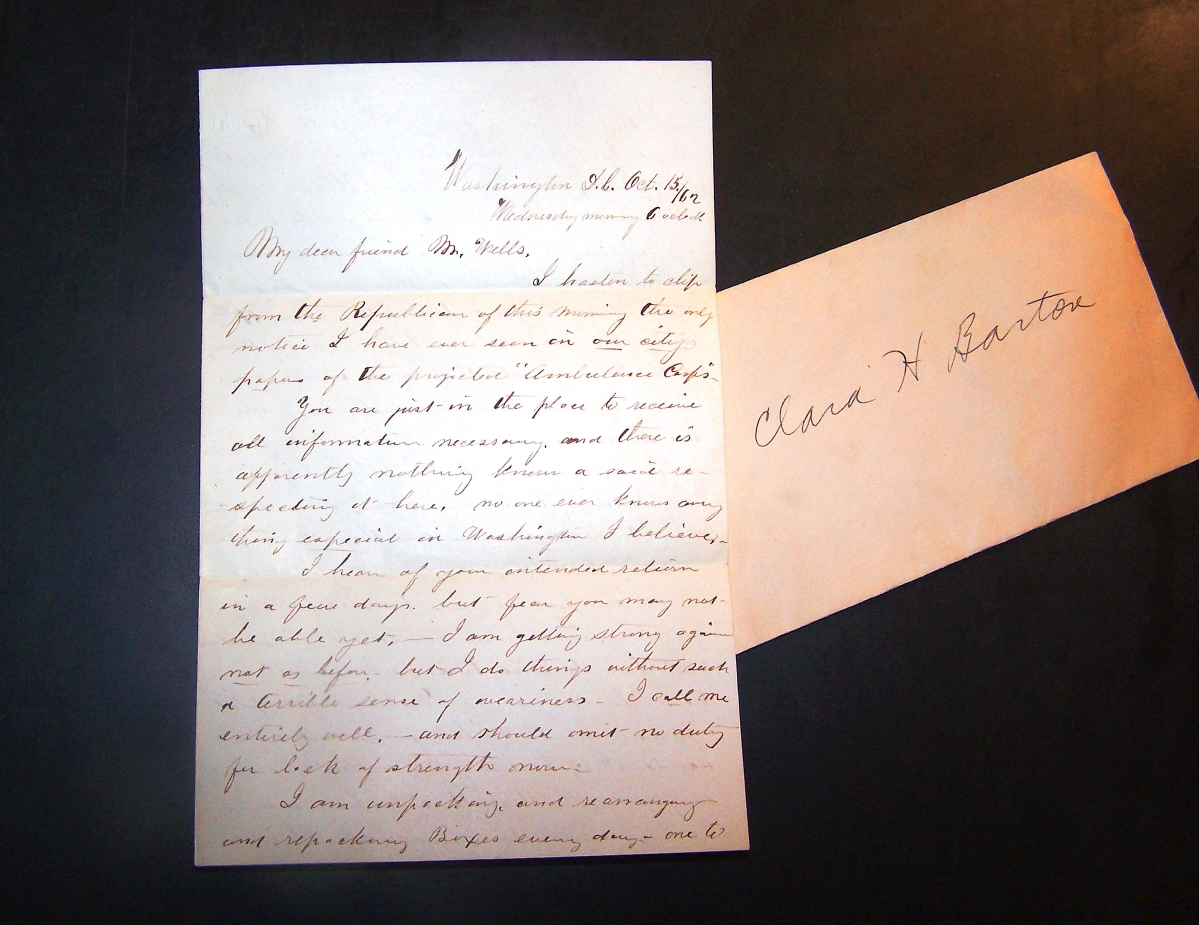 Washington D.C. Oct. 15/62
Wednesday morning 6 oclock
My dear friend Mr. Wells,
I hasten to clip
from the Republican of this morning the only
notice I have ever seen in our city
papers of the projected "Ambulance Corps"-
You are just in the place to receive
all information necessary. and there is
apparently nothing known a said re-
-specting it here, no one ever knows any
thing especial in Washington I believe,-
I hear of your intended return
in a few days. but fear you may not
be able yet, — I am getting strong again
not as before. but I do things without such
a terrible sense of weariness - I call me
entirely well, — and should omit no duty
for lack of strength now-
I am unpacking, and rearranging
and repacking Boxes every day - one to
Clara H Barton